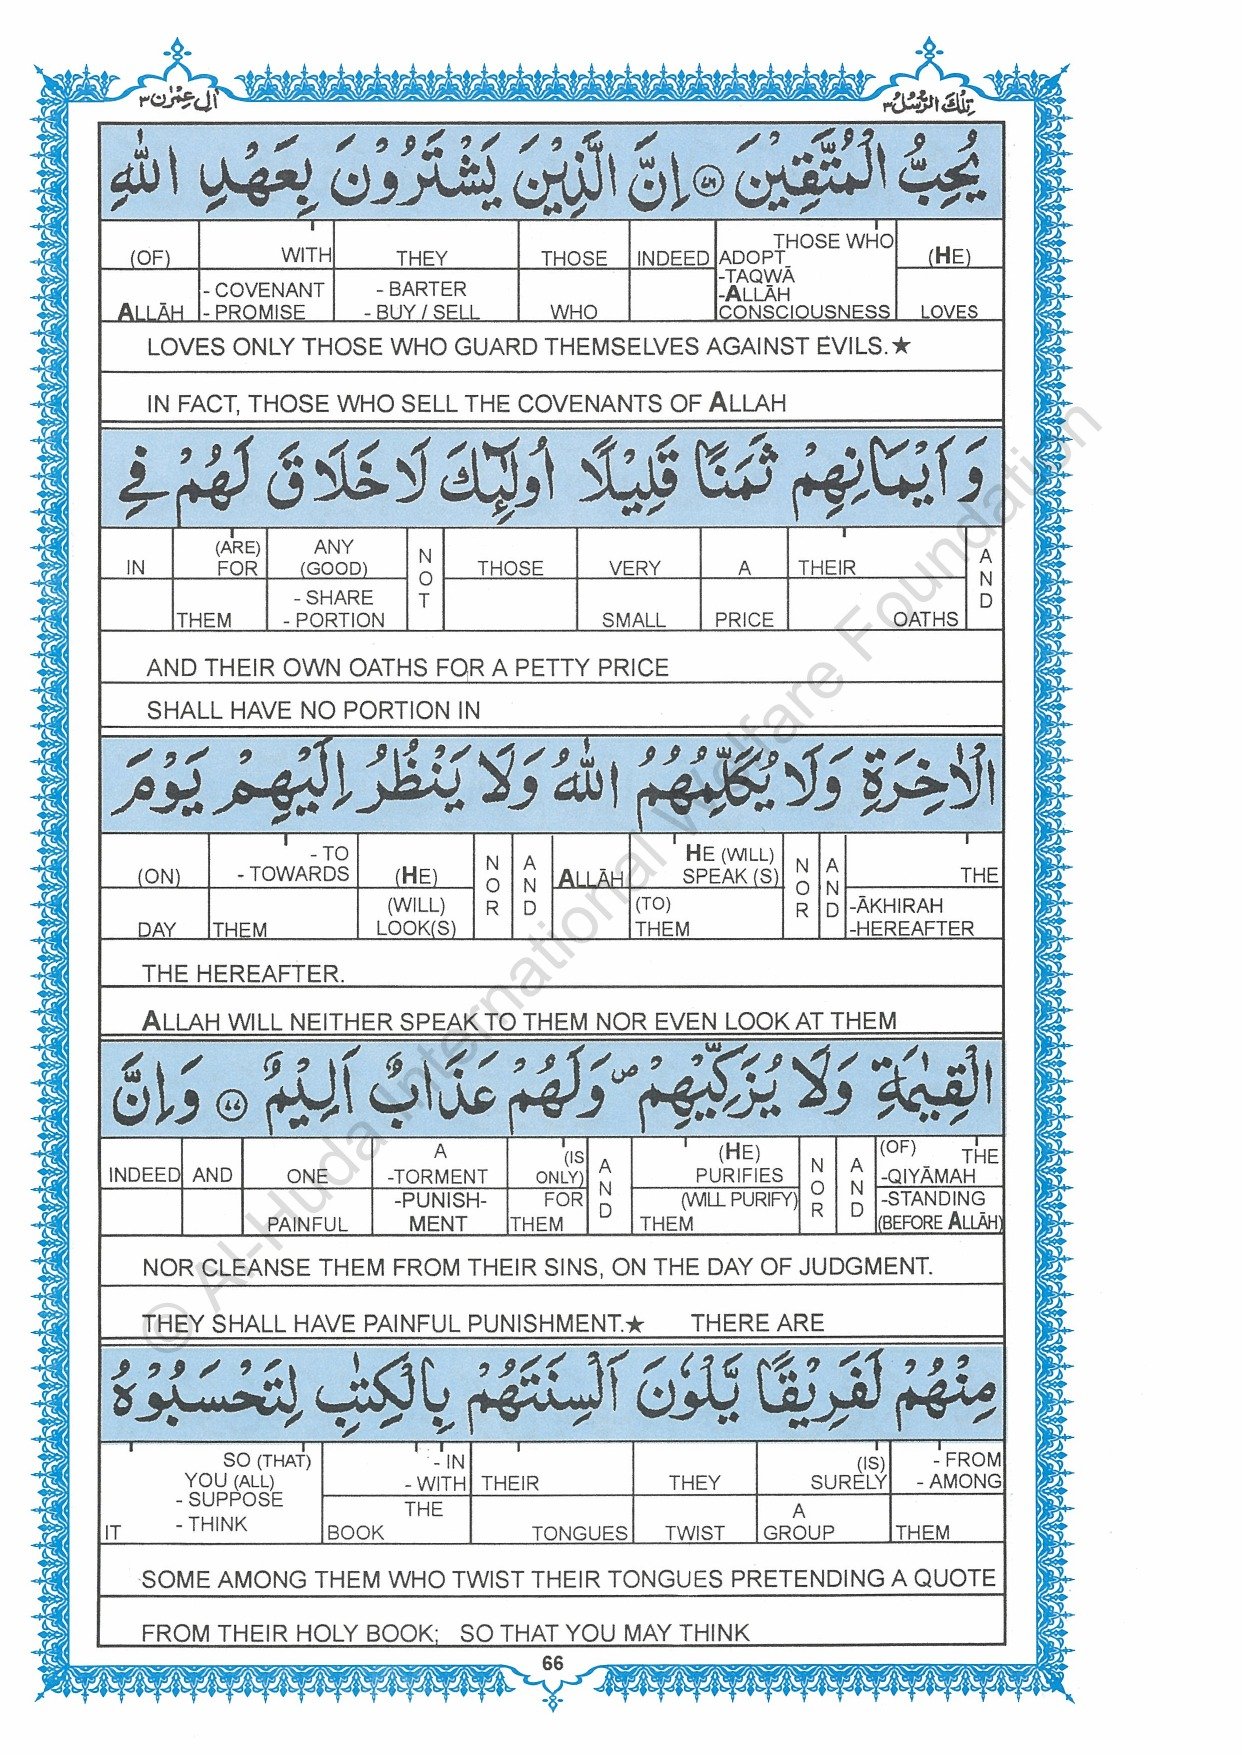 اٰل عِمْرٰن ٣
تِلْكَ الرُّسُلُ ٣
يُحِبُّ الْمُتَّقِيْنَ ٧٦ اِنَّ الَّذِيْنَ يَشْتَرُوْنَ بِعَهْدِ اللّٰهِ
(OF) ALLĀH | WITH - COVENANT - PROMISE | THEY - BARTER - BUY / SELL | THOSE WHO | INDEED | THOSE WHO ADOPT -TAQWĀ -ALLĀH CONSCIOUSNESS | (HE) LOVES
LOVES ONLY THOSE WHO GUARD THEMSELVES AGAINST EVILS.★
IN FACT, THOSE WHO SELL THE COVENANTS OF ALLAH
وَ اَيْمَانِهِمْ ثَمَنًا قَلِيْلًا اُولٰٓئِكَ لَا خَلَاقَ لَهُمْ فِي
IN | (ARE) FOR THEM | ANY (GOOD) - SHARE - PORTION | NOT | THOSE | VERY SMALL | A PRICE | THEIR OATHS | AND
AND THEIR OWN OATHS FOR A PETTY PRICE
SHALL HAVE NO PORTION IN
الْاٰخِرَةِ وَلَا يُكَلِّمُهُمُ اللّٰهُ وَلَا يَنْظُرُ اِلَيْهِمْ يَوْمَ
(ON) DAY | - TO - TOWARDS THEM | (HE) (WILL) LOOK(S) | NOR | AND | ALLĀH | HE (WILL) SPEAK (S) (TO) THEM | NOR | AND | THE -ĀKHIRAH -HEREAFTER
THE HEREAFTER.
ALLAH WILL NEITHER SPEAK TO THEM NOR EVEN LOOK AT THEM
الْقِيٰمَةِ وَلَا يُزَكِّيْهِمْ ۖ وَلَهُمْ عَذَابٌ اَلِيْمٌ ٧٧ وَاِنَّ
INDEED | AND | ONE PAINFUL | A -TORMENT -PUNISH-MENT | (IS ONLY) FOR THEM | AND | (HE) PURIFIES (WILL PURIFY) THEM | NOR | AND | (OF) THE -QIYĀMAH -STANDING (BEFORE ALLĀH)
NOR CLEANSE THEM FROM THEIR SINS, ON THE DAY OF JUDGMENT.
THEY SHALL HAVE PAINFUL PUNISHMENT.★ THERE ARE
مِنْهُمْ لَفَرِيْقًا يَّلْوٗنَ اَلْسِنَتَهُمْ بِالْكِتٰبِ لِتَحْسَبُوْهُ
SO (THAT) YOU (ALL) - SUPPOSE - THINK IT | - IN - WITH THE BOOK | THEIR TONGUES | THEY TWIST | (IS) SURELY A GROUP | - FROM - AMONG THEM
SOME AMONG THEM WHO TWIST THEIR TONGUES PRETENDING A QUOTE
FROM THEIR HOLY BOOK; SO THAT YOU MAY THINK
66
© Al-Huda International Welfare Foundation